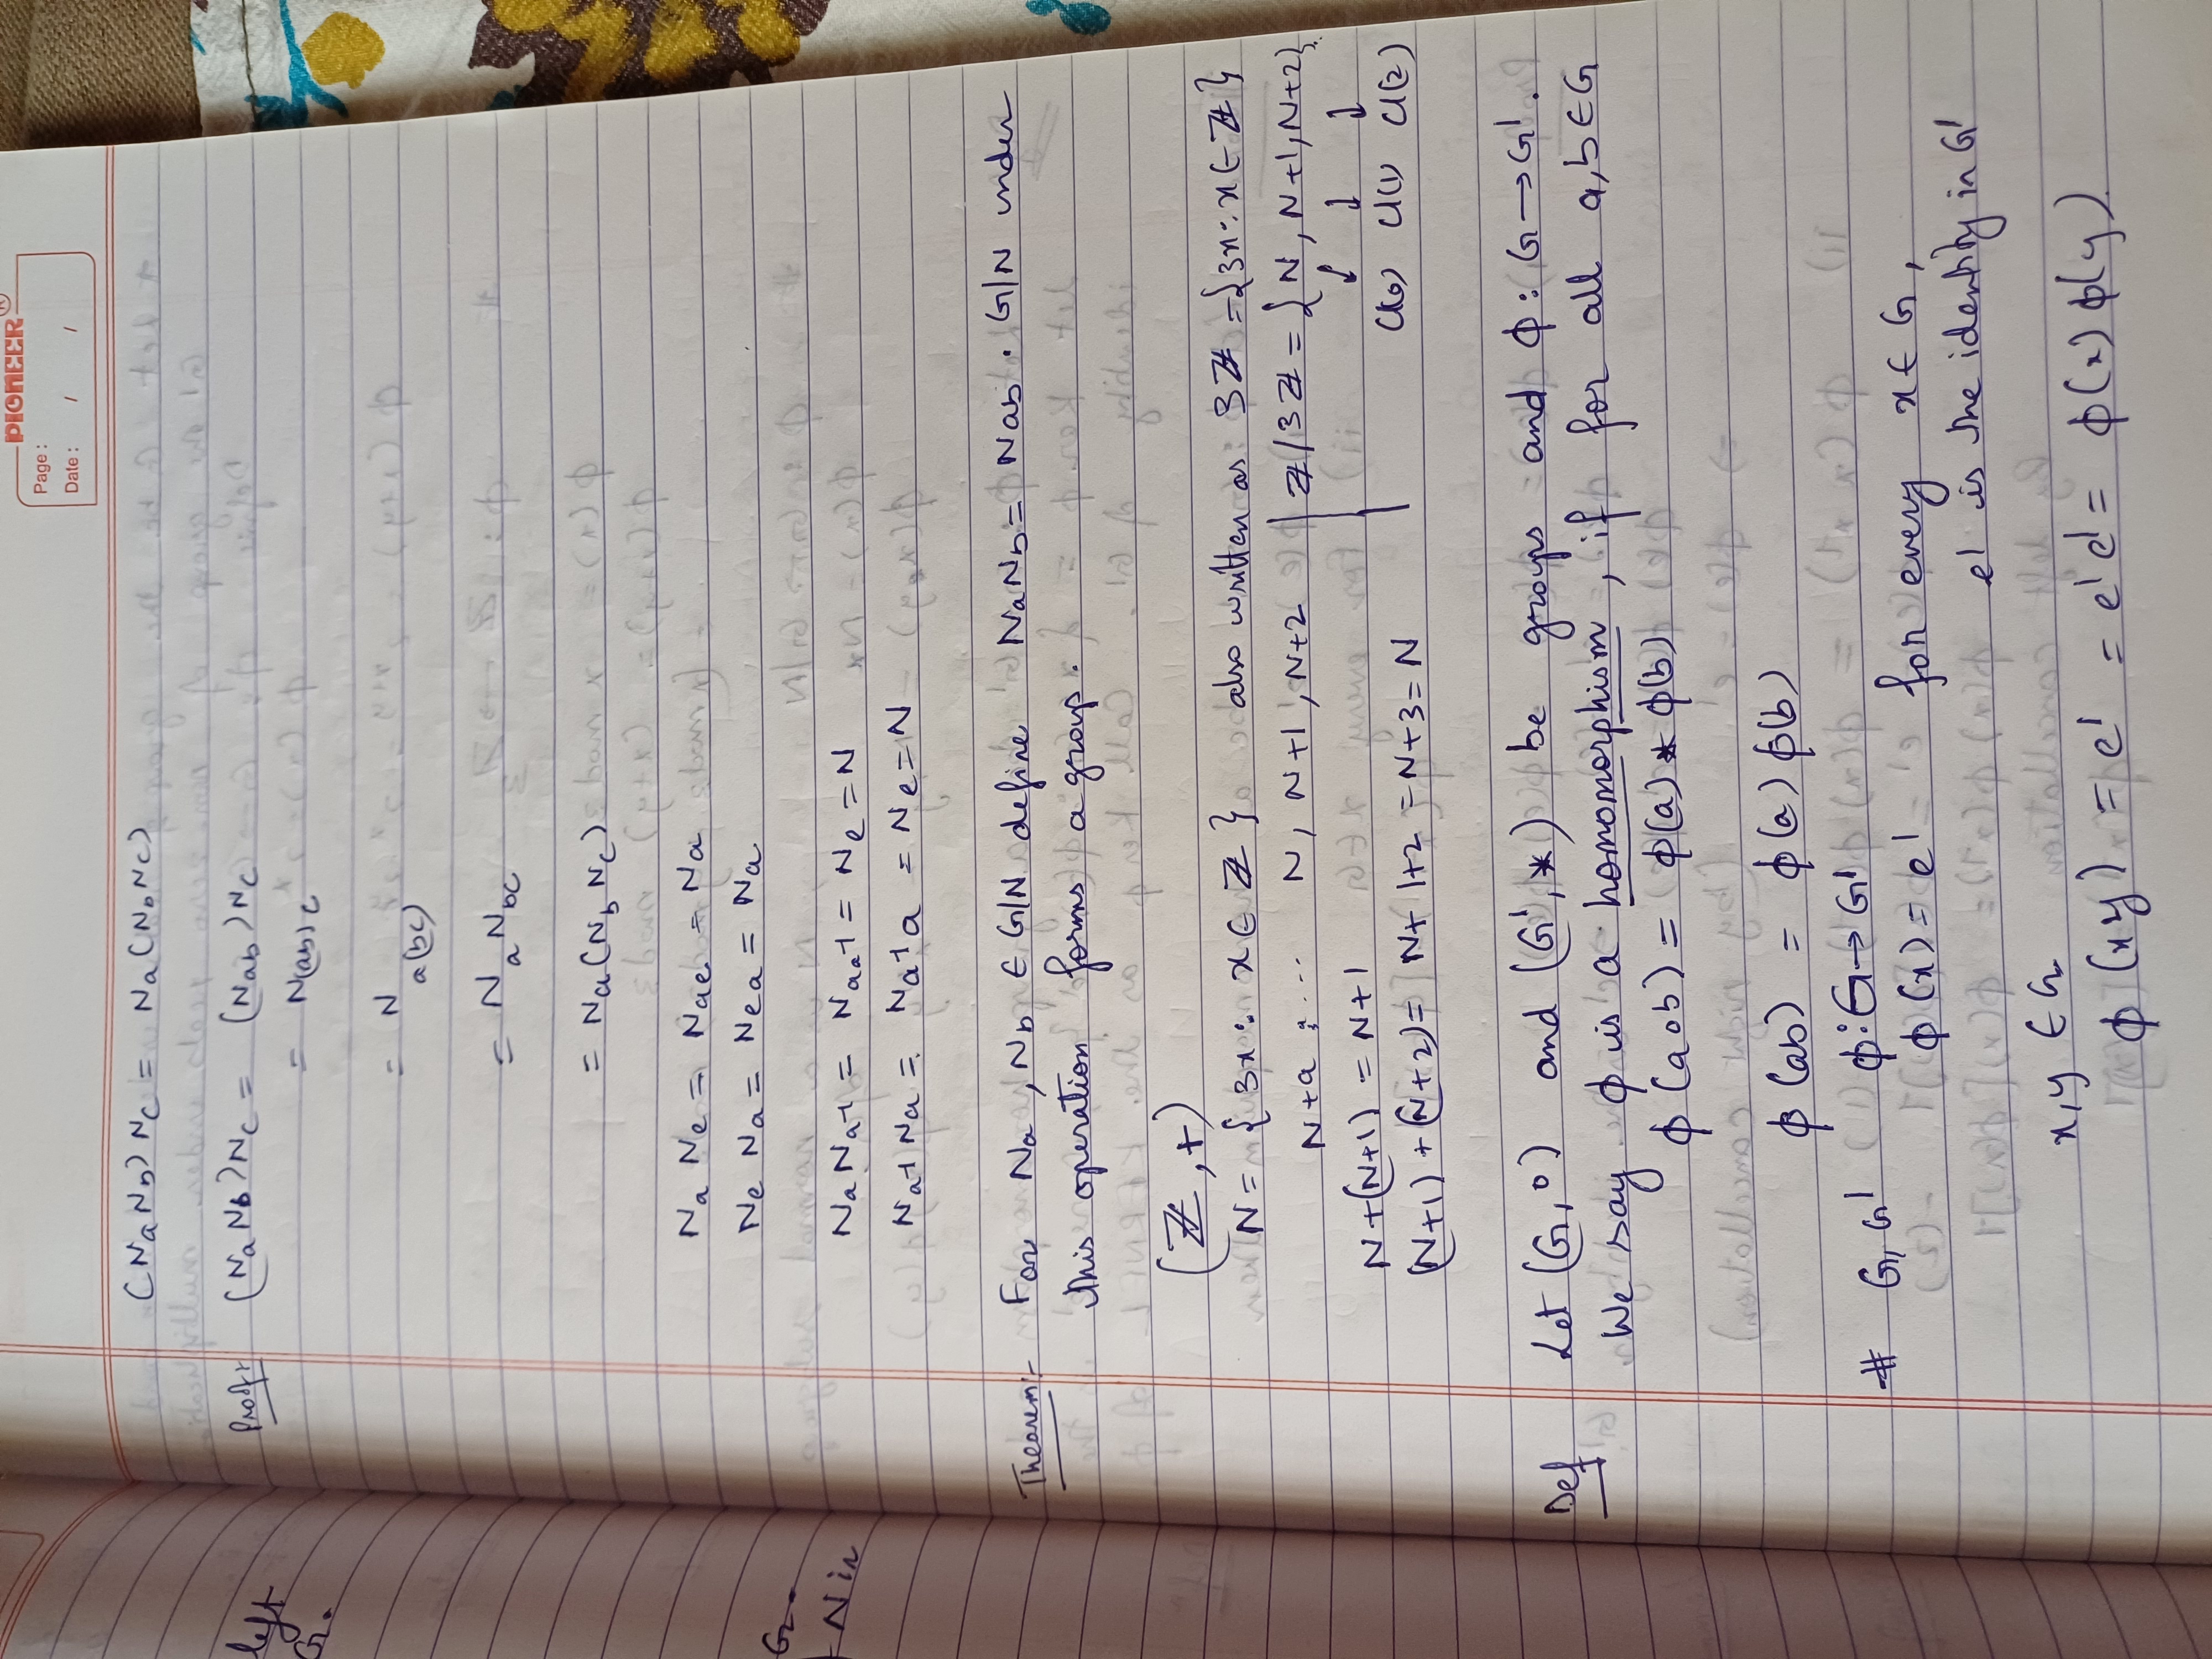 PIONEER®
Page :
Date : / /
(NaNb)Nc = Na(NbNc)
Proof:- (NaNb)Nc = (Nab)Nc
= N(ab)c
= Na(bc)
= NaNbc
= Na(NbNc)
NaNe = Nae = Na
NeNa = Nea = Na
NaNa-1 = Naa-1 = Ne = N
Na-1Na = Na-1a = Ne = N
Theorem:- For Na, Nb ∈ G/N define NaNb = Nab. G/N under
this operation forms a group.
(ℤ, +)
N = {3x : x ∈ ℤ} also written as 3ℤ = {3x : x ∈ ℤ}
N+a : ... N, N+1, N+2 | ℤ/3ℤ = {N, N+1, N+2}
↓ ↓ ↓
N+(N+1) = N+1 cl(0) cl(1) cl(2)
(N+1)+(N+2) = N+1+2 = N+3 = N
Def Let (G, o) and (G', *) be groups and ϕ : G → G'.
We say ϕ is a homomorphism, if for all a, b ∈ G
ϕ(aob) = ϕ(a) * ϕ(b)
ϕ(ab) = ϕ(a) ϕ(b)
# G, G' ϕ : G → G'
ϕ(x) = e' for every x ∈ G,
e' is the identity in G'
x, y ∈ G
ϕ(xy) = e' = e'e' = ϕ(x) ϕ(y)
left
G.
G.
N in